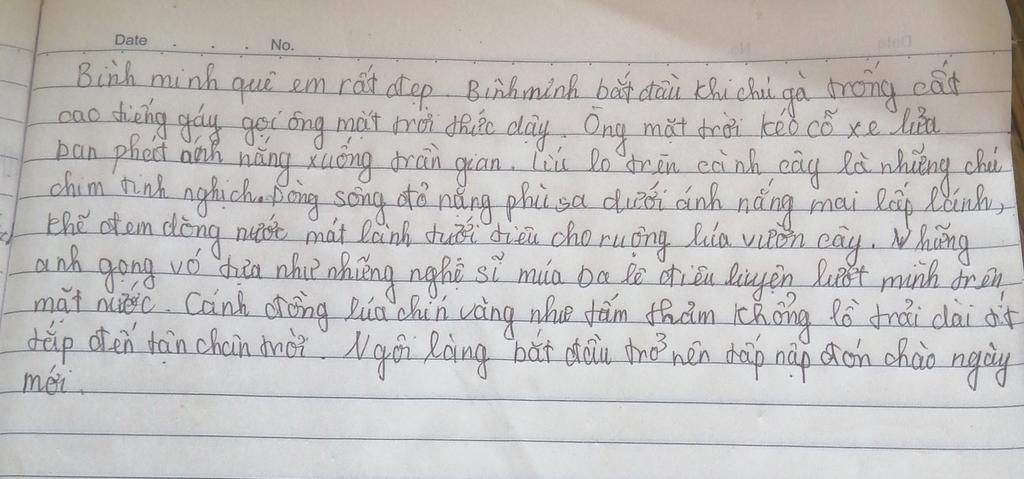 Date . . . No.
Bình minh quê em rất đẹp. Bình minh bắt đầu khi chú gà trống cất
cao tiếng gáy gọi ông mặt trời thức dậy. Ông mặt trời kéo cỗ xe lửa
ban phát ánh nắng xuống trần gian. Líu lo trên cành cây là những chú
chim tinh nghịch. Dòng sông đỏ nặng phù sa dưới ánh nắng mai lấp lánh,
khẽ đem dòng nước mát lành tưới tiêu cho ruộng lúa vườn cây. Những
anh gọng vó tựa như những nghệ sĩ múa ba lê điêu luyện lướt mình trên
mặt nước. Cánh đồng lúa chín vàng như tấm thảm khổng lồ trải dài tít
tắp đến tận chân trời. Ngôi làng bắt đầu trở nên tấp nập đón chào ngày
mới.